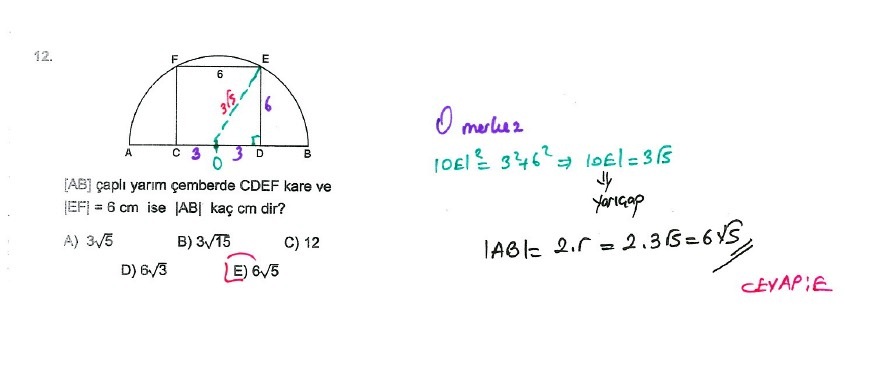 12.
F E
6
3√5 6
A C 3 3 D B
O
[AB] çaplı yarım çemberde CDEF kare ve
|EF| = 6 cm ise |AB| kaç cm dir?
A) 3√5 B) 3√15 C) 12
D) 6√3 E) 6√5
O merkez
|OE|² = 3²+6² ⇒ |OE| = 3√5
⇓
Yarıçap
|AB| = 2.r = 2.3√5 = 6√5
CEVAP: E